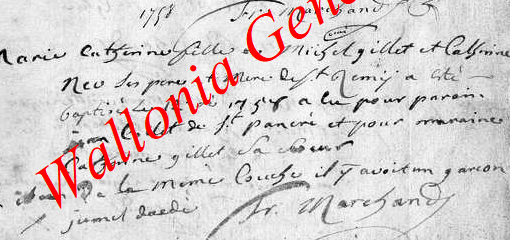 1758 Fr. Marchand
Marie Catherine fille de Michel gillet et Catherine
Neu ses pere et mere de st Remij a été
baptisé le 1758 a eu pour parain
gillet de st pancré et pour maraine
Catherine gillet sa soeur
de la meme Couche il y avoit un garçon
jumel
fr. Marchand
Wallonia Gen